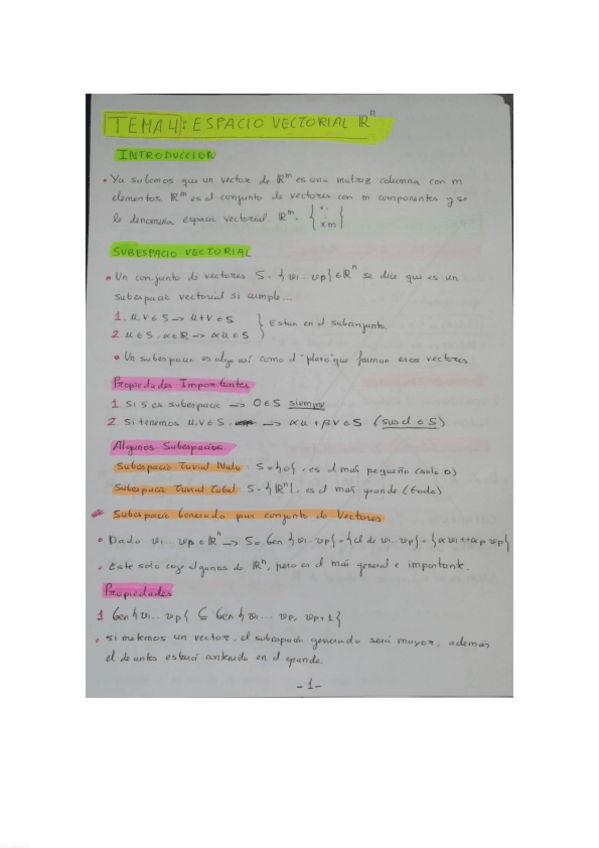 TEMA 4: ESPACIO VECTORIAL ℝⁿ
INTRODUCCION
• Ya sabemos que un vector de ℝᵐ es una matriz columna con m
elementos. ℝᵐ es el conjunto de vectores con m componentes y se
le denomina espacio vectorial. ℝᵐ = { x₁ ⋮ xm }
SUBESPACIO VECTORIAL
• Un conjunto de vectores S = {v1 ... vp} ∈ ℝⁿ se dice que es un
subespacio vectorial si cumple...
1. u, v ∈ S → u+v ∈ S
2. u ∈ S, α ∈ ℝ → αu ∈ S } Estan en el subconjunto.
• Un subespacio es algo así como el "plano" que forman esos vectores
Propiedades Importantes
1 Si S es subespacio → 0 ∈ S siempre
2 Si tenemos u, v ∈ S → αu + βv ∈ S (sus cl ∈ S)
Algunos Subespacios
Subespacio Trivial Nulo: S = {0}, es el más pequeño (solo 0)
Subespacio Trivial Total: S = {ℝⁿ}, es el más grande (todo)
Subespacio Generado por conjunto de Vectores
• Dado v1 ... vp ∈ ℝⁿ → S = Gen {v1 ... vp} = {cl de v1 ... vp} = {αv1 + αp vp}
• Este solo coge algunos de ℝⁿ, pero es el más general e importante.
Propiedades
1 Gen {v1 ... vp} ⊆ Gen {v1 ... vp, vp+1}
• Si metemos un vector, el subespacio generado será mayor, además
el de antes estará contenido en el grande.
- 1 -